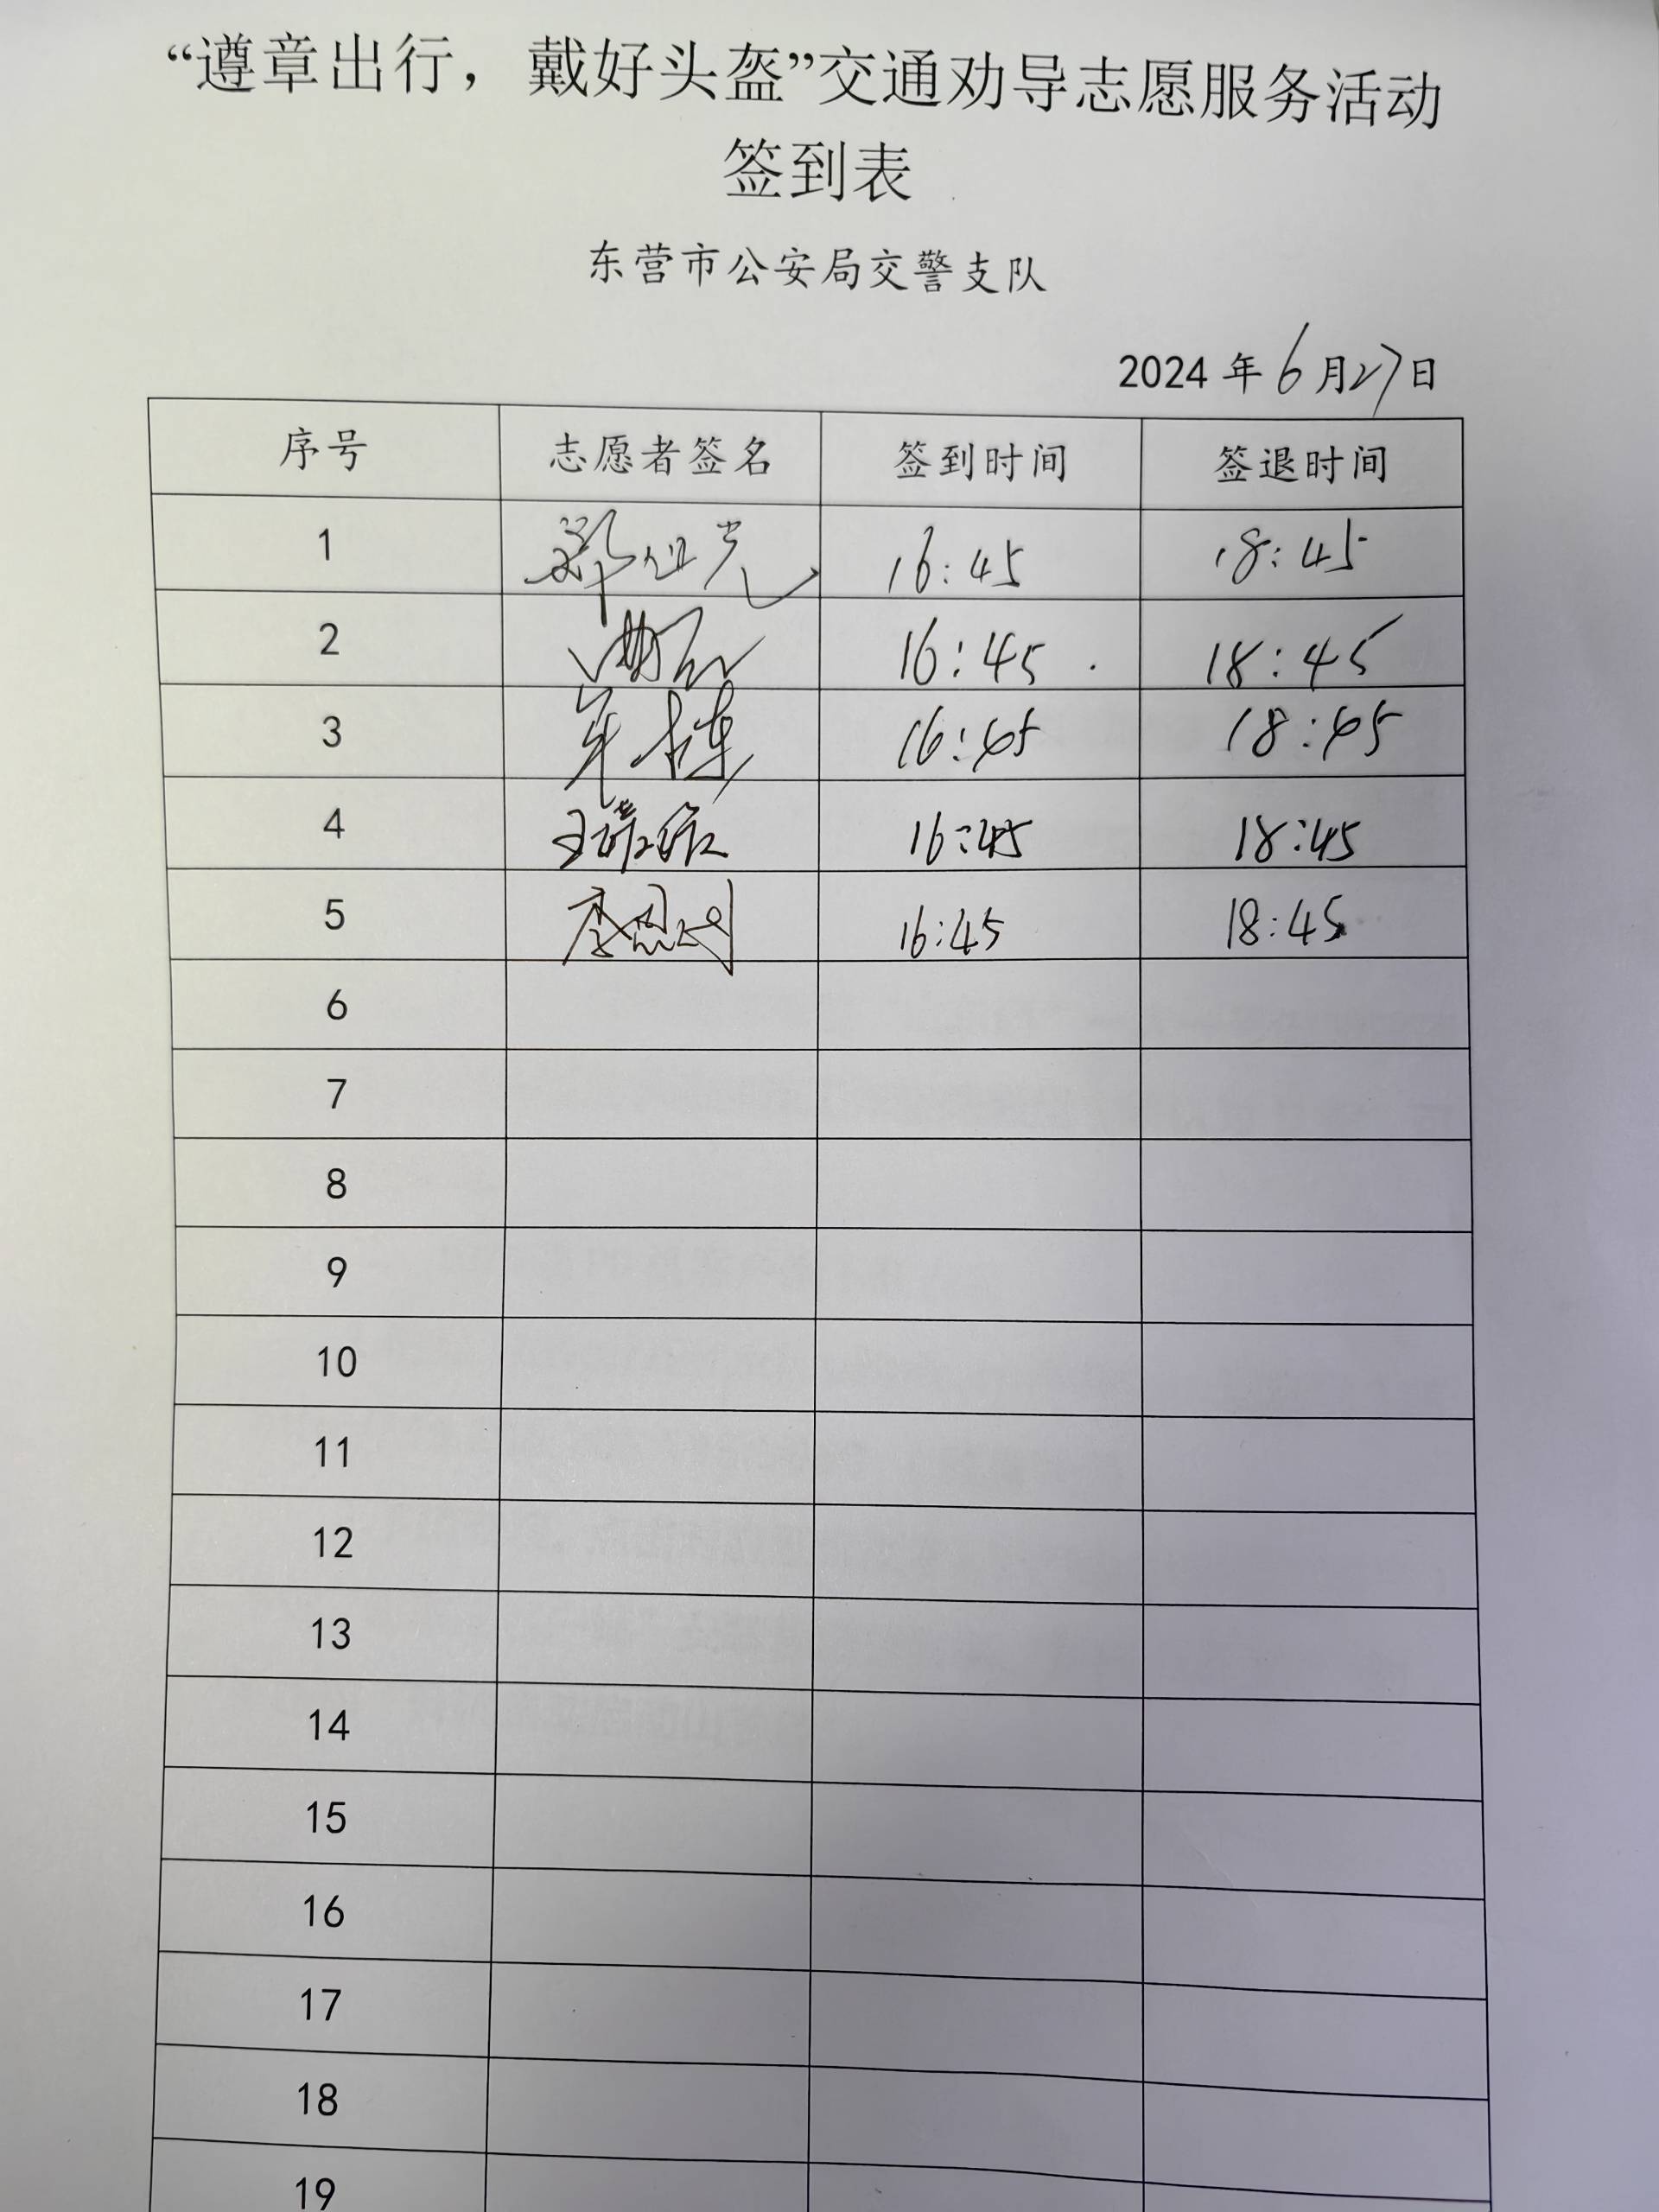 “遵章出行，戴好头盔”交通劝导志愿服务活动
签到表
东营市公安局交警支队
2024 年 6 月 27 日
序号 志愿者签名 签到时间 签退时间
1 16:45 18:45
2 16:45 18:45
3 16:45 18:45
4 16:45 18:45
5 16:45 18:45
6
7
8
9
10
11
12
13
14
15
16
17
18
19